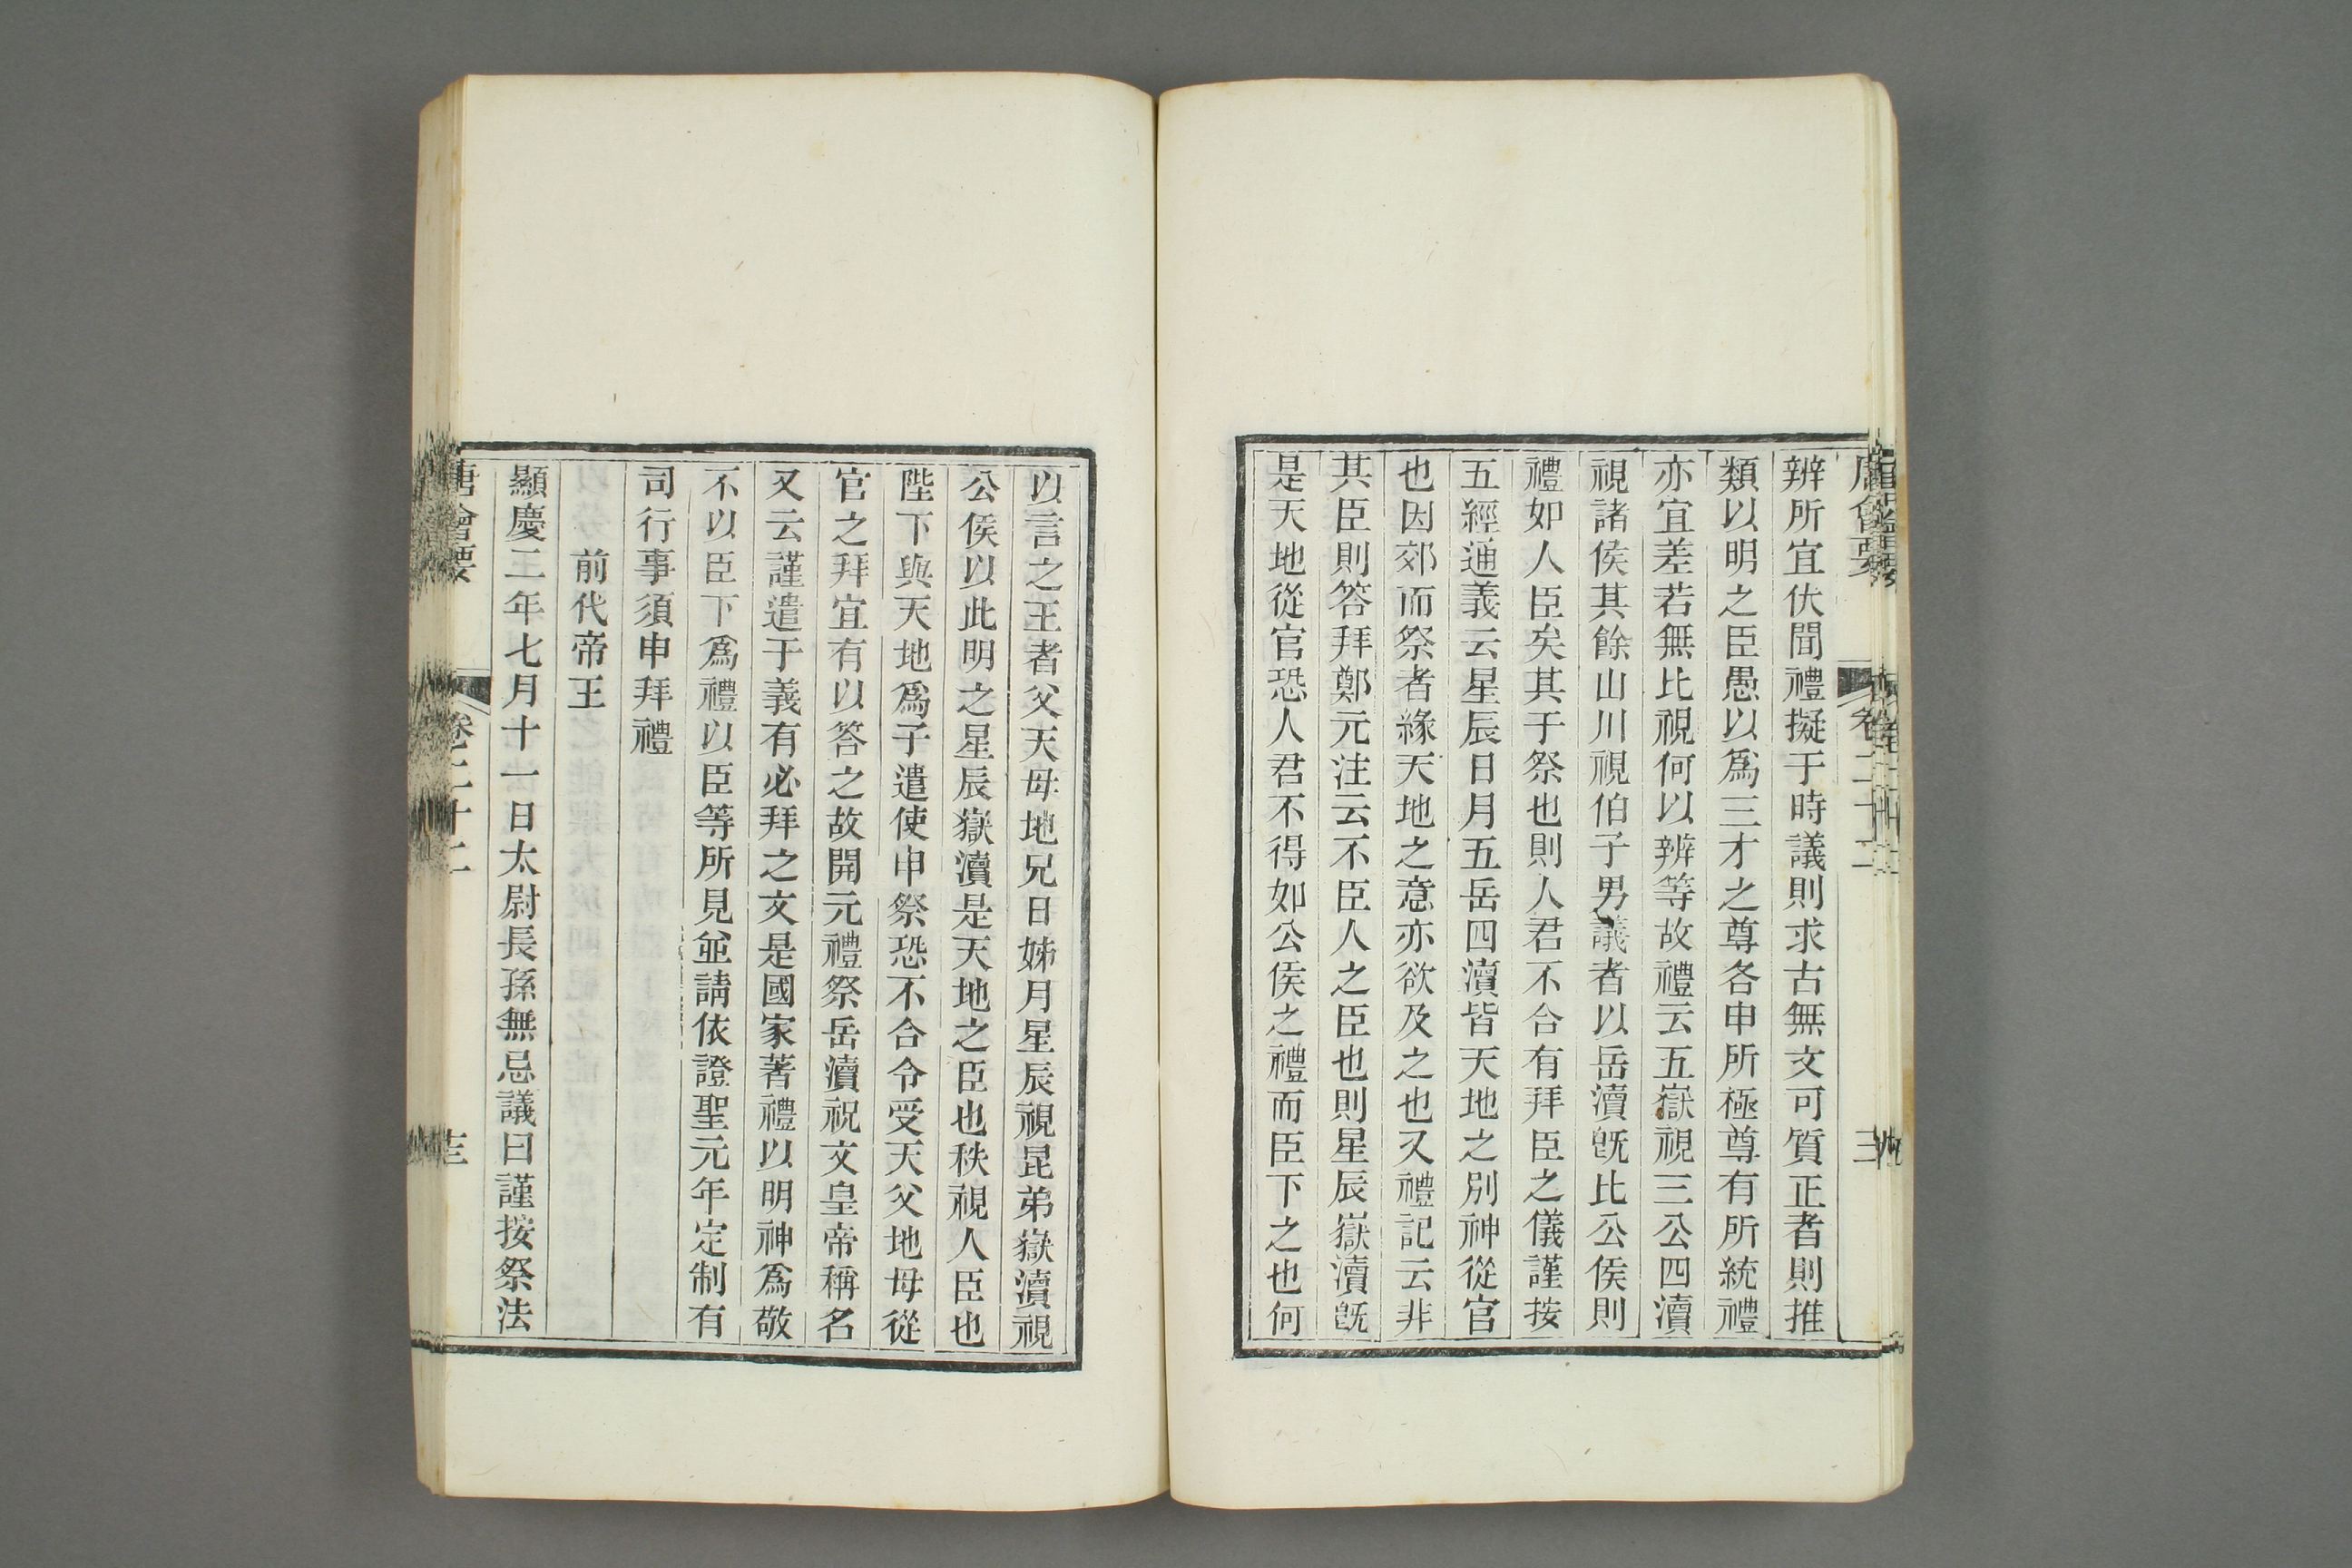 唐會要 卷二十二 三
辨所宜伏聞禮擬于時議則求古無文可質正者則推
類以明之臣愚以爲三才之尊各申所極尊有所統禮
亦宜差若無比視何以辨等故禮云五嶽視三公四瀆
視諸侯其餘山川視伯子男議者以岳瀆旣比公侯則
禮如人臣矣其于祭也則人君不合有拜臣之儀謹按
五經通義云星辰日月五岳四瀆皆天地之別神從官
也因郊而祭者緣天地之意亦欲及之也又禮記云非
其臣則答拜鄭元注云不臣人之臣也則星辰嶽瀆旣
是天地從官恐人君不得如公侯之禮而臣下之也何
以言之王者父天母地兄日姊月星辰視昆弟嶽瀆視
公侯以此明之星辰嶽瀆是天地之臣也秩視人臣也
陛下與天地爲子遣使申祭恐不合令受天父地母從
官之拜宜有以答之故開元禮祭岳瀆祝文皇帝稱名
又云謹遣于義有必拜之文是國家著禮以明神爲敬
不以臣下爲禮以臣等所見並請依證聖元年定制有
司行事須申拜禮
前代帝王
顯慶二年七月十一日太尉長孫無忌議曰謹按祭法
唐會要 卷二十二